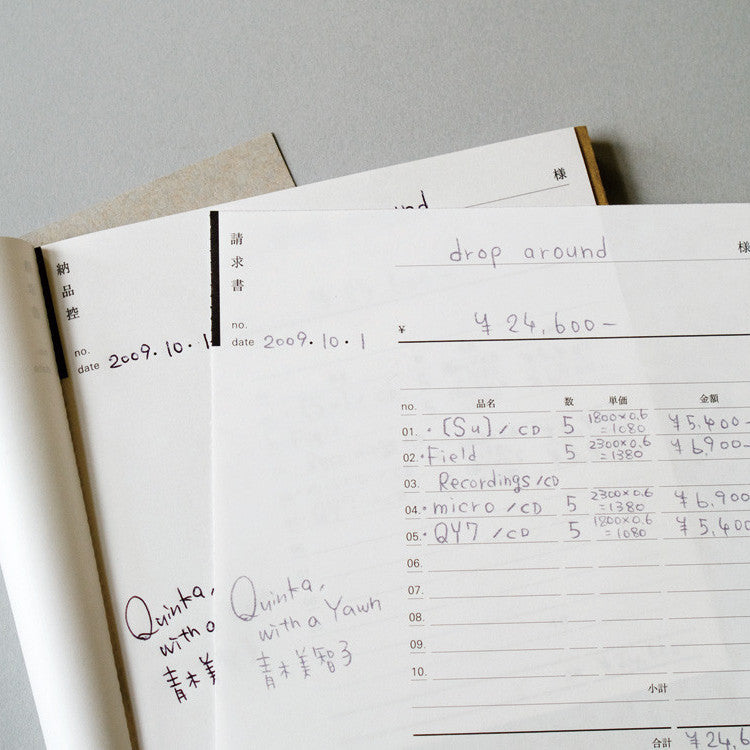 様
納品控
no.
date 2009.10.1
Quinka,
with a
青木美
請求書
no.
date 2009.10.1
drop around 様
¥ ¥24,600-
no. 品名 数 単価 金額
01. ・[Su]/CD 5 1800×0.6=1080 ¥5,400-
02. ・Field 5 2300×0.6=1380 ¥6,900-
03. Recordings/CD
04. ・micro/CD 5 2300×0.6=1380 ¥6,900
05. ・QY7/CD 5 1800×0.6=1080 ¥5,400
06.
07.
08.
09.
10.
小計
合計 ¥24,6
Quinka,
with a Yawn
青木美智子